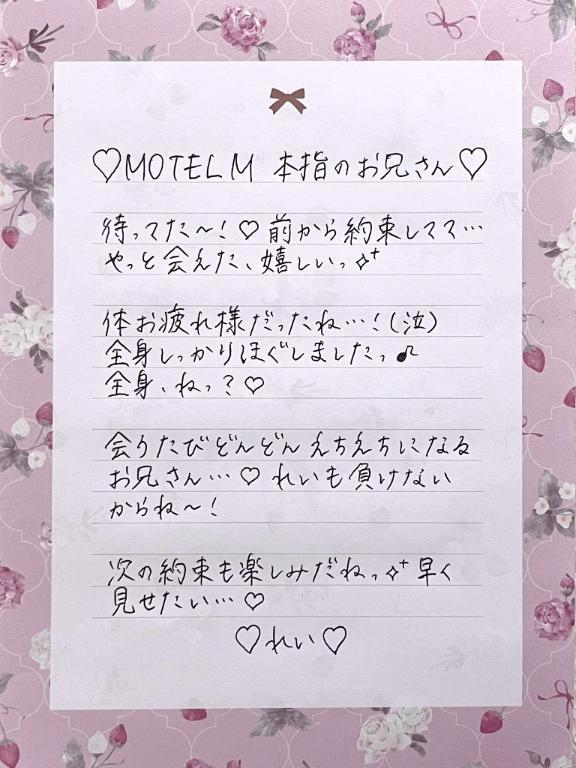 ♡MOTEL M 本指のお兄さん♡
待ってた〜!♡前から約束してて…
やっと会えた、嬉しいっ✧⁺
体お疲れ様だったね…!(泣)
全身しっかりほぐしましたっ♪
全身、ねっ?♡
会うたびどんどんえちえちになる
お兄さん…♡れいも負けない
からね〜!
次の約束も楽しみだねっ✧⁺早く
見せたい…♡
♡れい♡